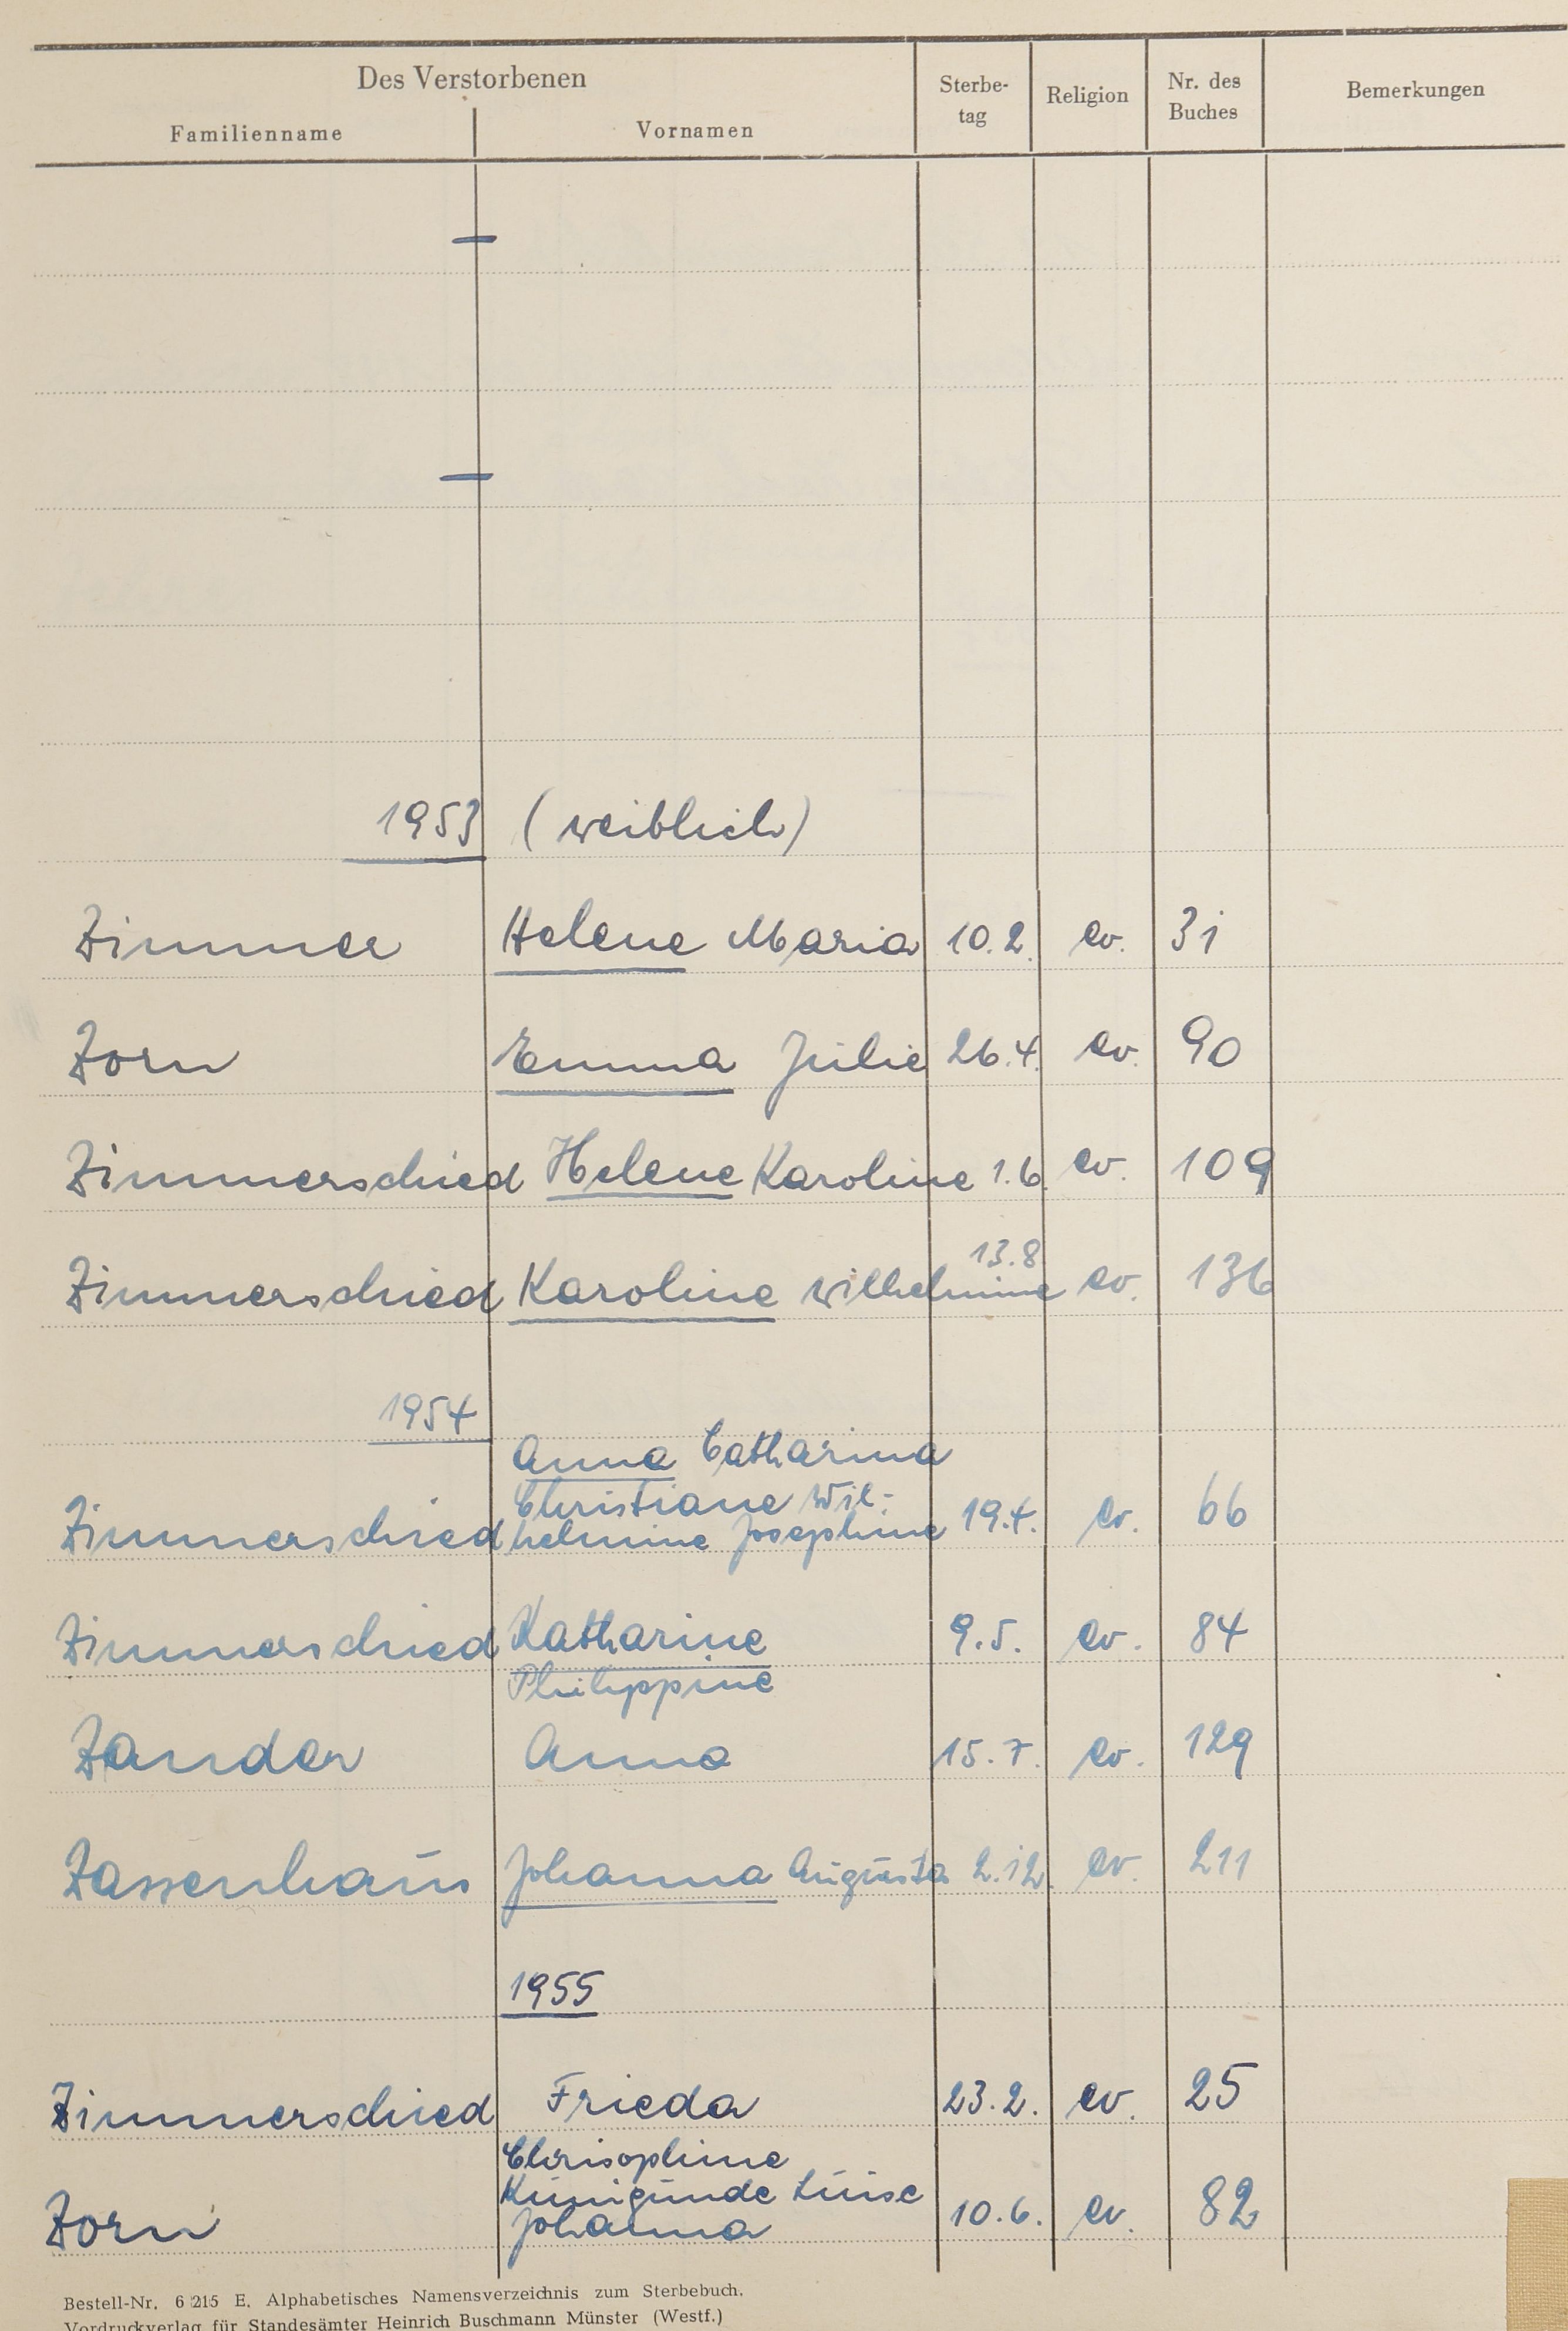 Des Verstorbenen
Familienname Vornamen Sterbe-tag Religion Nr. des Buches Bemerkungen
1953 (weiblich)
Zimmer Helene Maria 10.2. ev. 31
Zorn Emma Julie 26.4. ev. 90
Zimmerschied Helene Karoline 1.6. ev. 109
13.8
Zimmerschied Karoline Wilhelmine ev. 136
1954
Anna Catharina
Christiane Wil-
Zimmerschied helmine Josephine 19.4. ev. 66
Zimmerschied Katharine 9.5. ev. 84
Philippine
Zander Anna 15.7. ev. 129
Zassenhaus Johanna Augusta 2.12. ev. 211
1955
Zimmerschied Frieda 23.2. ev. 25
Chrisophine
Kunigunde Luise
Zorn Johanna 10.6. ev. 82
Bestell-Nr. 6 215 E. Alphabetisches Namensverzeichnis zum Sterbebuch.
Vordruckverlag für Standesämter Heinrich Buschmann Münster (Westf.)